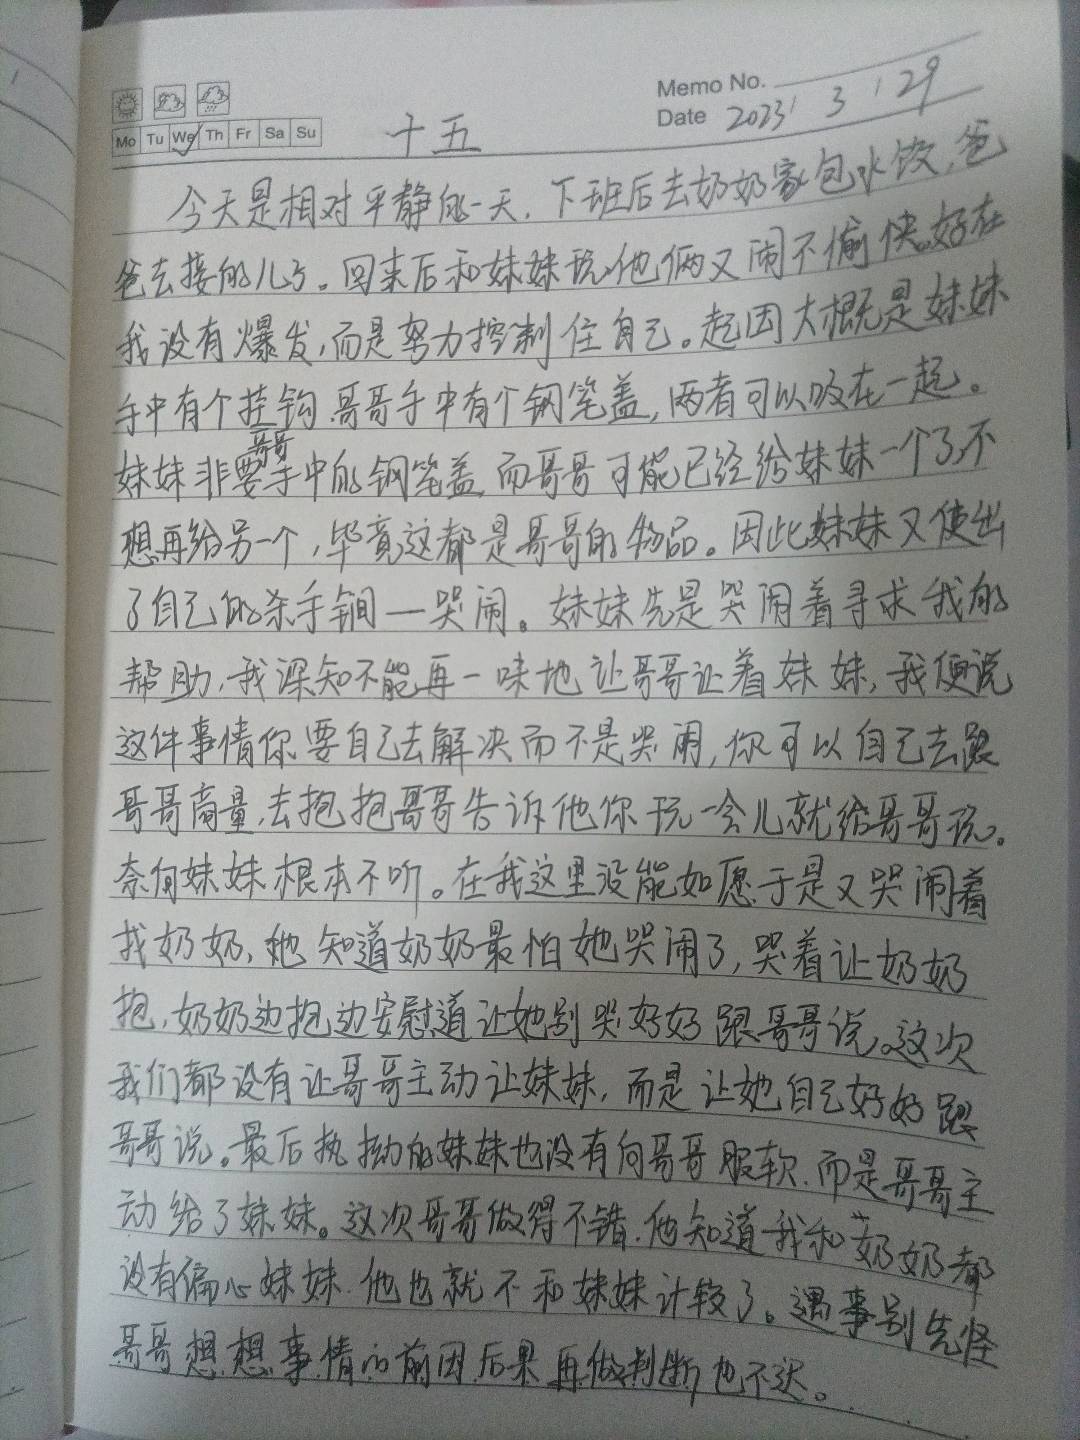 Memo No.
Mo Tu We Th Fr Sa Su
Date 2023 / 3 / 29
十五
今天是相对平静的一天，下班后去奶奶家包水饺，爸
爸去接的儿子。回来后和妹妹玩，他俩又闹不愉快。好在
我没有爆发，而是努力控制住自己。起因大概是妹妹
手中有个挂钩，哥哥手中有个钢笔盖，两者可以吸在一起。
妹妹非要哥哥手中的钢笔盖，而哥哥可能已经给妹妹一个了不
想再给另一个，毕竟这都是哥哥的物品。因此妹妹又使出
了自己的杀手锏—哭闹。妹妹先是哭闹着寻求我的
帮助，我深知不能再一味地让哥哥让着妹妹，我便说
这件事情你要自己去解决而不是哭闹，你可以自己去跟
哥哥商量，去抱抱哥哥告诉他你玩一会儿就给哥哥玩。
奈何妹妹根本不听。在我这里没能如愿于是又哭闹着
找奶奶，她知道奶奶最怕她哭闹了，哭着让奶奶
抱，奶奶边抱边安慰道让她别哭好好跟哥哥说。这次
我们都没有让哥哥主动让妹妹，而是让她自己好好跟
哥哥说。最后执拗的妹妹也没有向哥哥服软，而是哥哥主
动给了妹妹。这次哥哥做得不错，他知道我和奶奶都
没有偏心妹妹，他也就不和妹妹计较了。遇事别先怪
哥哥想想事情的前因后果再做判断也不迟。